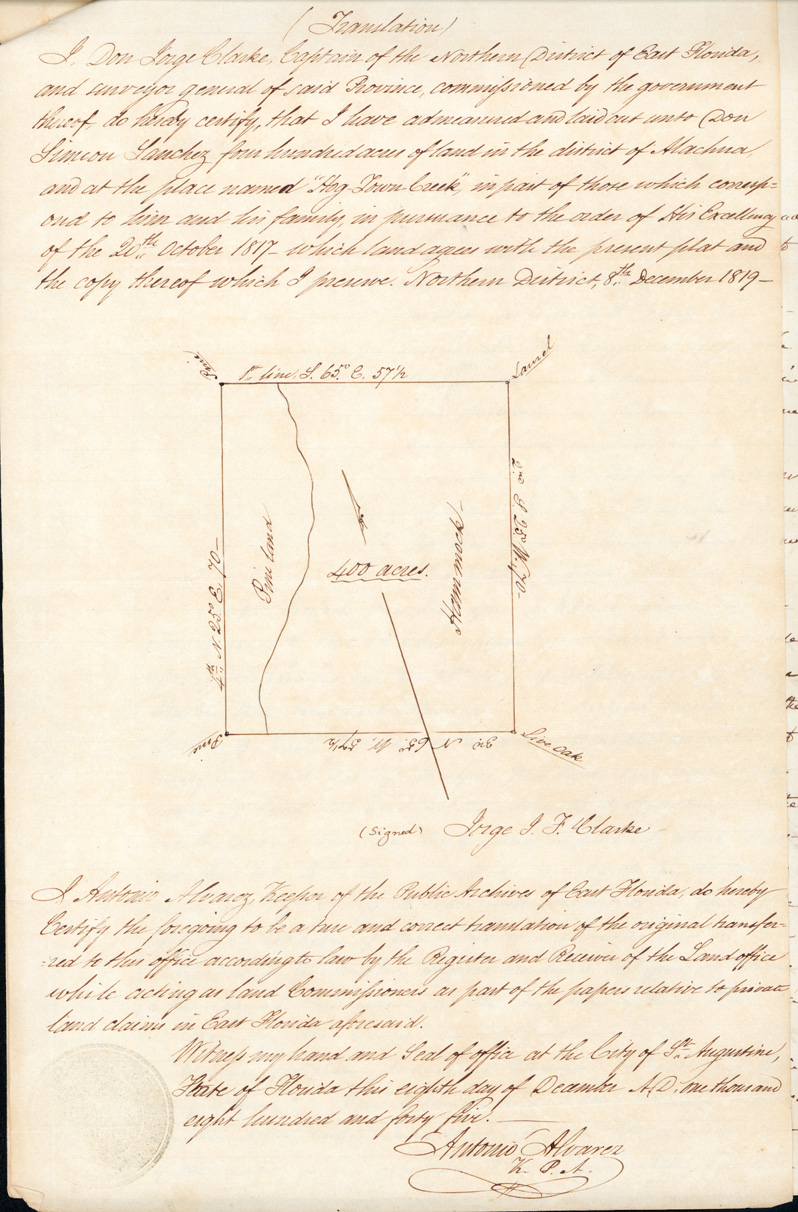 (Translation)
I, Don Jorge Clarke, Captain of the Northern District of East Florida,
and surveyor general of said Province, commissioned by the government
thereof, do hereby certify, that I have admeasured and laid out unto Don
Simeon Sanchez four hundred acres of land in the district of Alachua,
and at the place named "Hog-Town-Creek", in part of those which corresp=
ond to him and his family, in pursuance to the order of His Excellency
of the 20th October 1817 - which land agrees with the present plat and
the copy thereof which I preserve. Northern District, 8th December 1819 -
Pine
1st line. S. 65° E. 57½
Laurel
2d S. 25° W. 70-
Pine land
400 acres.
Hammock
4th N. 25° E. 70-
Pine
3d N 65° W. 57½
Live oak
(Signed) Jorge J. F. Clarke
I Antonio Alvarez, Keeper of the Public Archives of East Florida, do hereby
Certify the foregoing to be a true and correct translation of the original transfer-
-red to this office according to law by the Register and Receiver of the Land office
while acting as land Commissioners as part of the papers relative to private
land claims in East Florida aforesaid.
Witness my hand and Seal of office at the City of St. Augustine,
State of Florida this eighth day of December A.D. one thousand
eight hundred and forty five.
Antonio Alvarez
K. P. A.